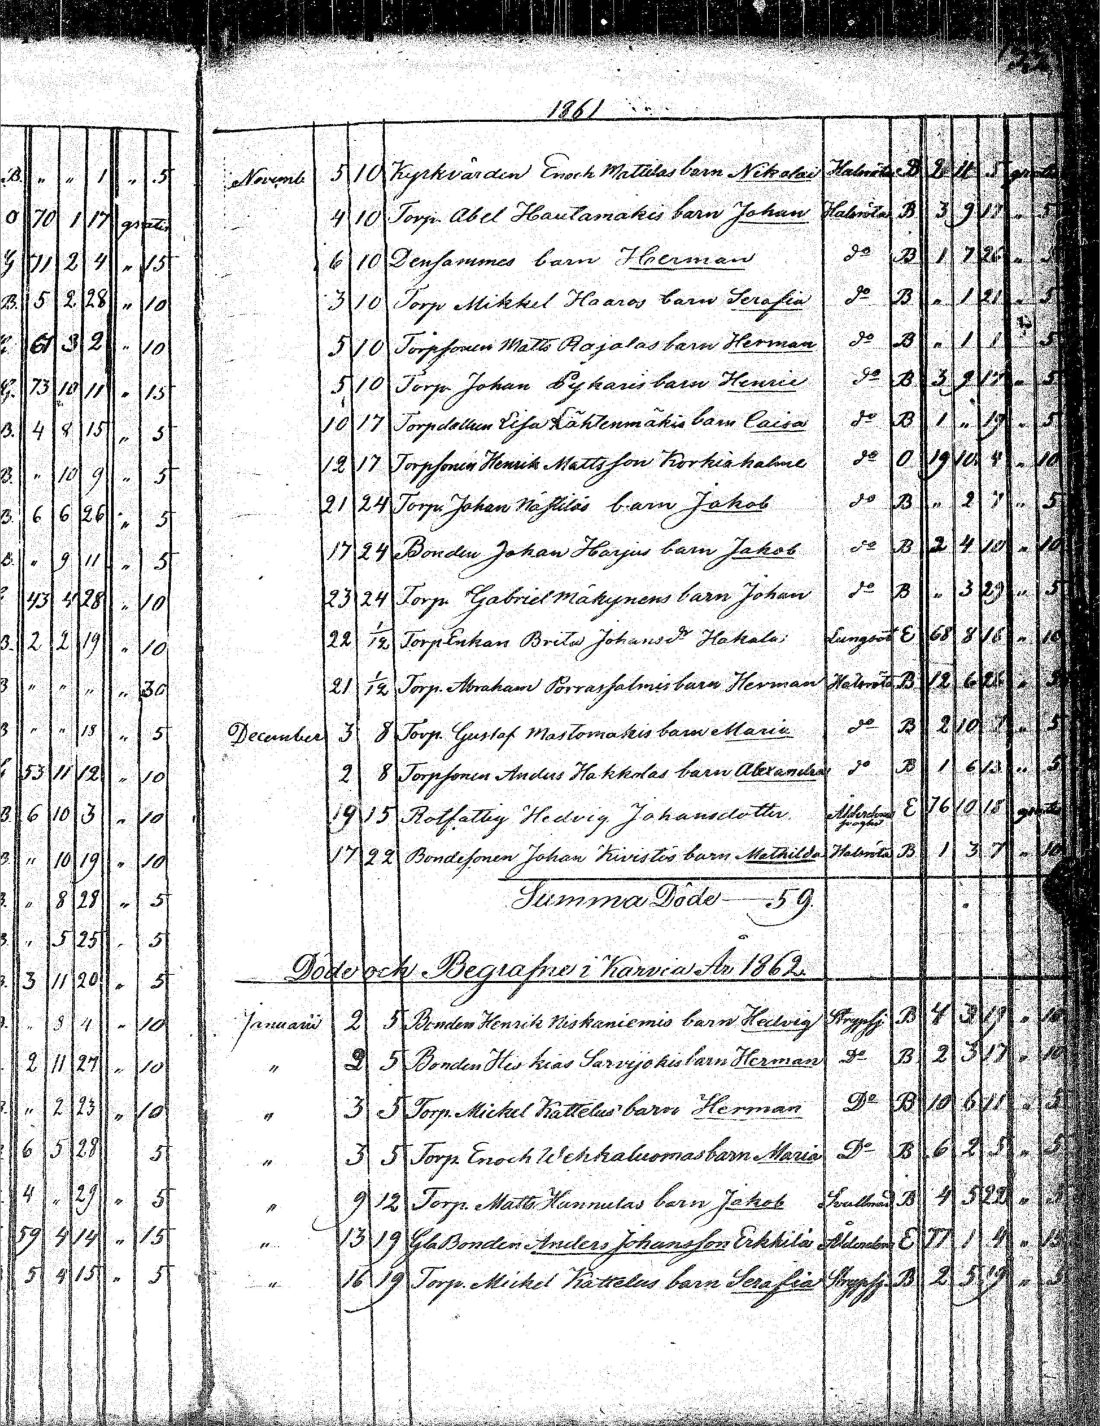 1861
B. " " 1 " 5
O 70 1 17 gratis
G 71 2 4 " 15
B. 5 2 28 " 10
61 3 2 " 10
G. 73 10 11 " 15
B. 4 8 15 " 5
B. " 10 9 " 5
B. 6 6 26 " 5
B. " 9 11 " 5
43 4 28 " 10
B. 2 2 19 " 10
B " " " " 30
B " " 13 " 5
53 11 12 " 10
B. 6 10 3 " 10
B. " 10 19 " 10
B. " 8 28 " 5
B. " 5 25 " 5
B. 3 11 20 " 5
" 3 4 " 10
2 11 27 " 10
B. " 2 23 " 10
6 5 28 5
4 " 29 " 5
59 4 14 " 15
5 4 15 " 5
Novemb 5 10 Kyrkvärden Enoch Mattilas barn Nikolai Halsröta B 2 4 5 gratis
4 10 Torp. Abel Hautamakis barn Johan Halsröta B 3 9 17 " 5
6 10 Densammes barn Herman do B 1 7 26 " 5
3 10 Torp Mikkel Haaros barn Serafia do B " 1 21 " 5
5 10 Torpsonen Matts Rajalas barn Herman do B " 1 1 5
5 10 Torp. Johan Pykaris barn Henric do B 3 9 17 " 5
10 17 Torpdottren Lisa Lähtenmäkis barn Caisa do B 1 " 19 " 5
12 17 Torpsonen Henrik Mattsson Korkiakalme do O. 19 10 4 " 10
21 24 Torp. Johan Näsilös barn Jakob do B " 2 7 " 5
17 24 Bonden Johan Harjus barn Jakob do B 2 4 10 " 10
23 24 Torp. Gabriel Mäkynens barn Johan do B " 3 29 " 5
22 1/12 Torp Enkan Brita Johansdr Hakala Lungsöt E 68 8 16 " 10
21 1/12 Torp. Abraham Porrassalmis barn Herman Halsröta B 12 6 26 "
December 3 8 Torp. Gustaf Mastomakis barn Maria do B 2 10 7 " 5
2 8 Torpsonen Anders Hakkolas barn Alexandra do B 1 6 13 " 5
19 15 Rotfattig Hedvig Johansdotter Ålderdoms E 76 10 18 gratis
17 22 Bondesonen Johan Kivistös barn Mathilda Halsröta B 1 3 7 " 10
Summa Döde 59.
Döde och Begrafne i Karvia År 1862.
Januarii 2 5 Bonden Henrik Niskaniemis barn Hedvig Strypsj. B 4 3 19 " 10
" 2 5 Bonden Hiskias Sarvijokis barn Herman Do B 2 3 17 " 10
" 3 5 Torp. Mickel Kattelus barn Herman Do B 10 6 11 " 5
" 3 5 Torp. Enoch Wehkaluomas barn Maria Do B 6 2 5 " 5
" 9 12 Torp. Matts Hannulas barn Jakob B 4 5 22 " 5
" 13 19 Gla Bonden Anders Johansson Erkkilä Ålderdom E 77 1 4 " 15
" 16 19 Torp. Mickel Kattelus barn Serafia Strypsj. B 2 5 19 " 5